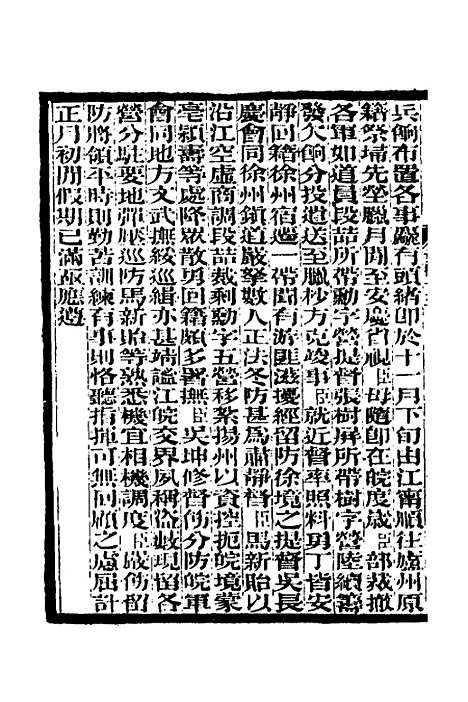 兵餉布置各事畧有頭緒即於十一月下旬由江南順往廬州原
籍祭埽先塋臘月間至安慶省視臣母隨即在皖度歲臣部裁撤
各軍如道員段喆所帶勳字營提督張樹屏所帶樹字營陸續籌
發欠餉分投遣送至臘杪方克竣事臣就近督率照料勇丁皆安
靜回籍徐州宿遷一帶聞有游匪滋擾經留防徐境之提督吳長
慶會同徐州鎮道嚴拏數人正法冬防甚爲肅靜督臣馬新貽以
沿江空虛商調段喆裁剩勳字五營移紮揚州以資控扼皖境蒙
亳潁壽等處降眾散勇回籍頗多署撫臣吳坤修督飭分防皖軍
會同地方文武撫綏巡緝亦甚靖謐江皖交界夙稱盜數現留各
營分駐要地彈壓巡防馬新貽等熟悉機宜相機調度臣嚴飭留
防將領平時則勤苦訓練有事則恪聽指揮可無回顧之慮屈計
正月初間假期已滿亟應遵